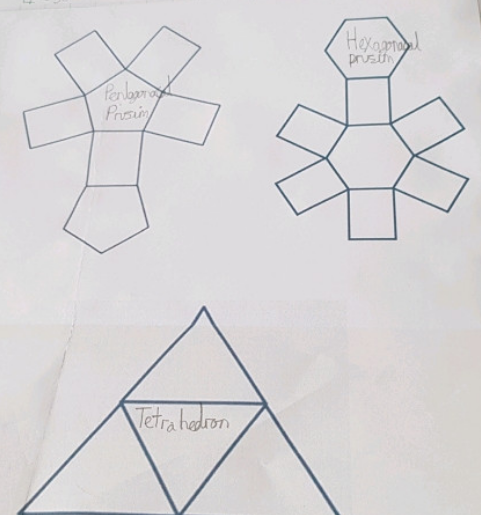 Pentagonal
Prusim
Hexagonagal
prusim
Tetrahedron